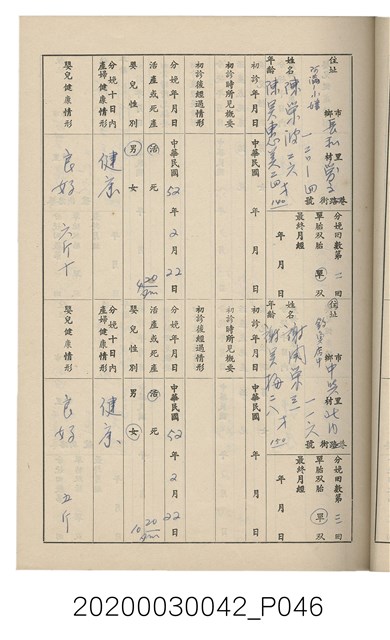 住址
阿滿小姐
市鄉 長和 里村 營子 路街巷 一二〇一四 號
姓名 陳榮波 二六 才
年齡 陳吳惠美 二四 才 150
分娩回數第二回
單胎双胎 單 双
最終月經 年 月 日
初診年月日 年 月 日
初診時所見概要
初診後經過情形
分娩年月日 中華民國 52 年 2 月 22 日
活產或死產 活 死
嬰兒性別 男 女
分娩十日內產婦健康情形 健康
嬰兒健康情形 良好 六斤十
住址
市鄉 中興 里村 路街巷 一一六 號
姓名 謝開榮 三一
年齡 謝美梅 二八 才 150
分娩回數第三回
單胎双胎 單 双
最終月經 年 月 日
初診年月日 年 月 日
初診時所見概要
初診後經過情形
分娩年月日 中華民國 52 年 2 月 22 日
活產或死產 活 死
嬰兒性別 男 女
分娩十日內產婦健康情形 健康
嬰兒健康情形 良好 五斤
20200030042_P046